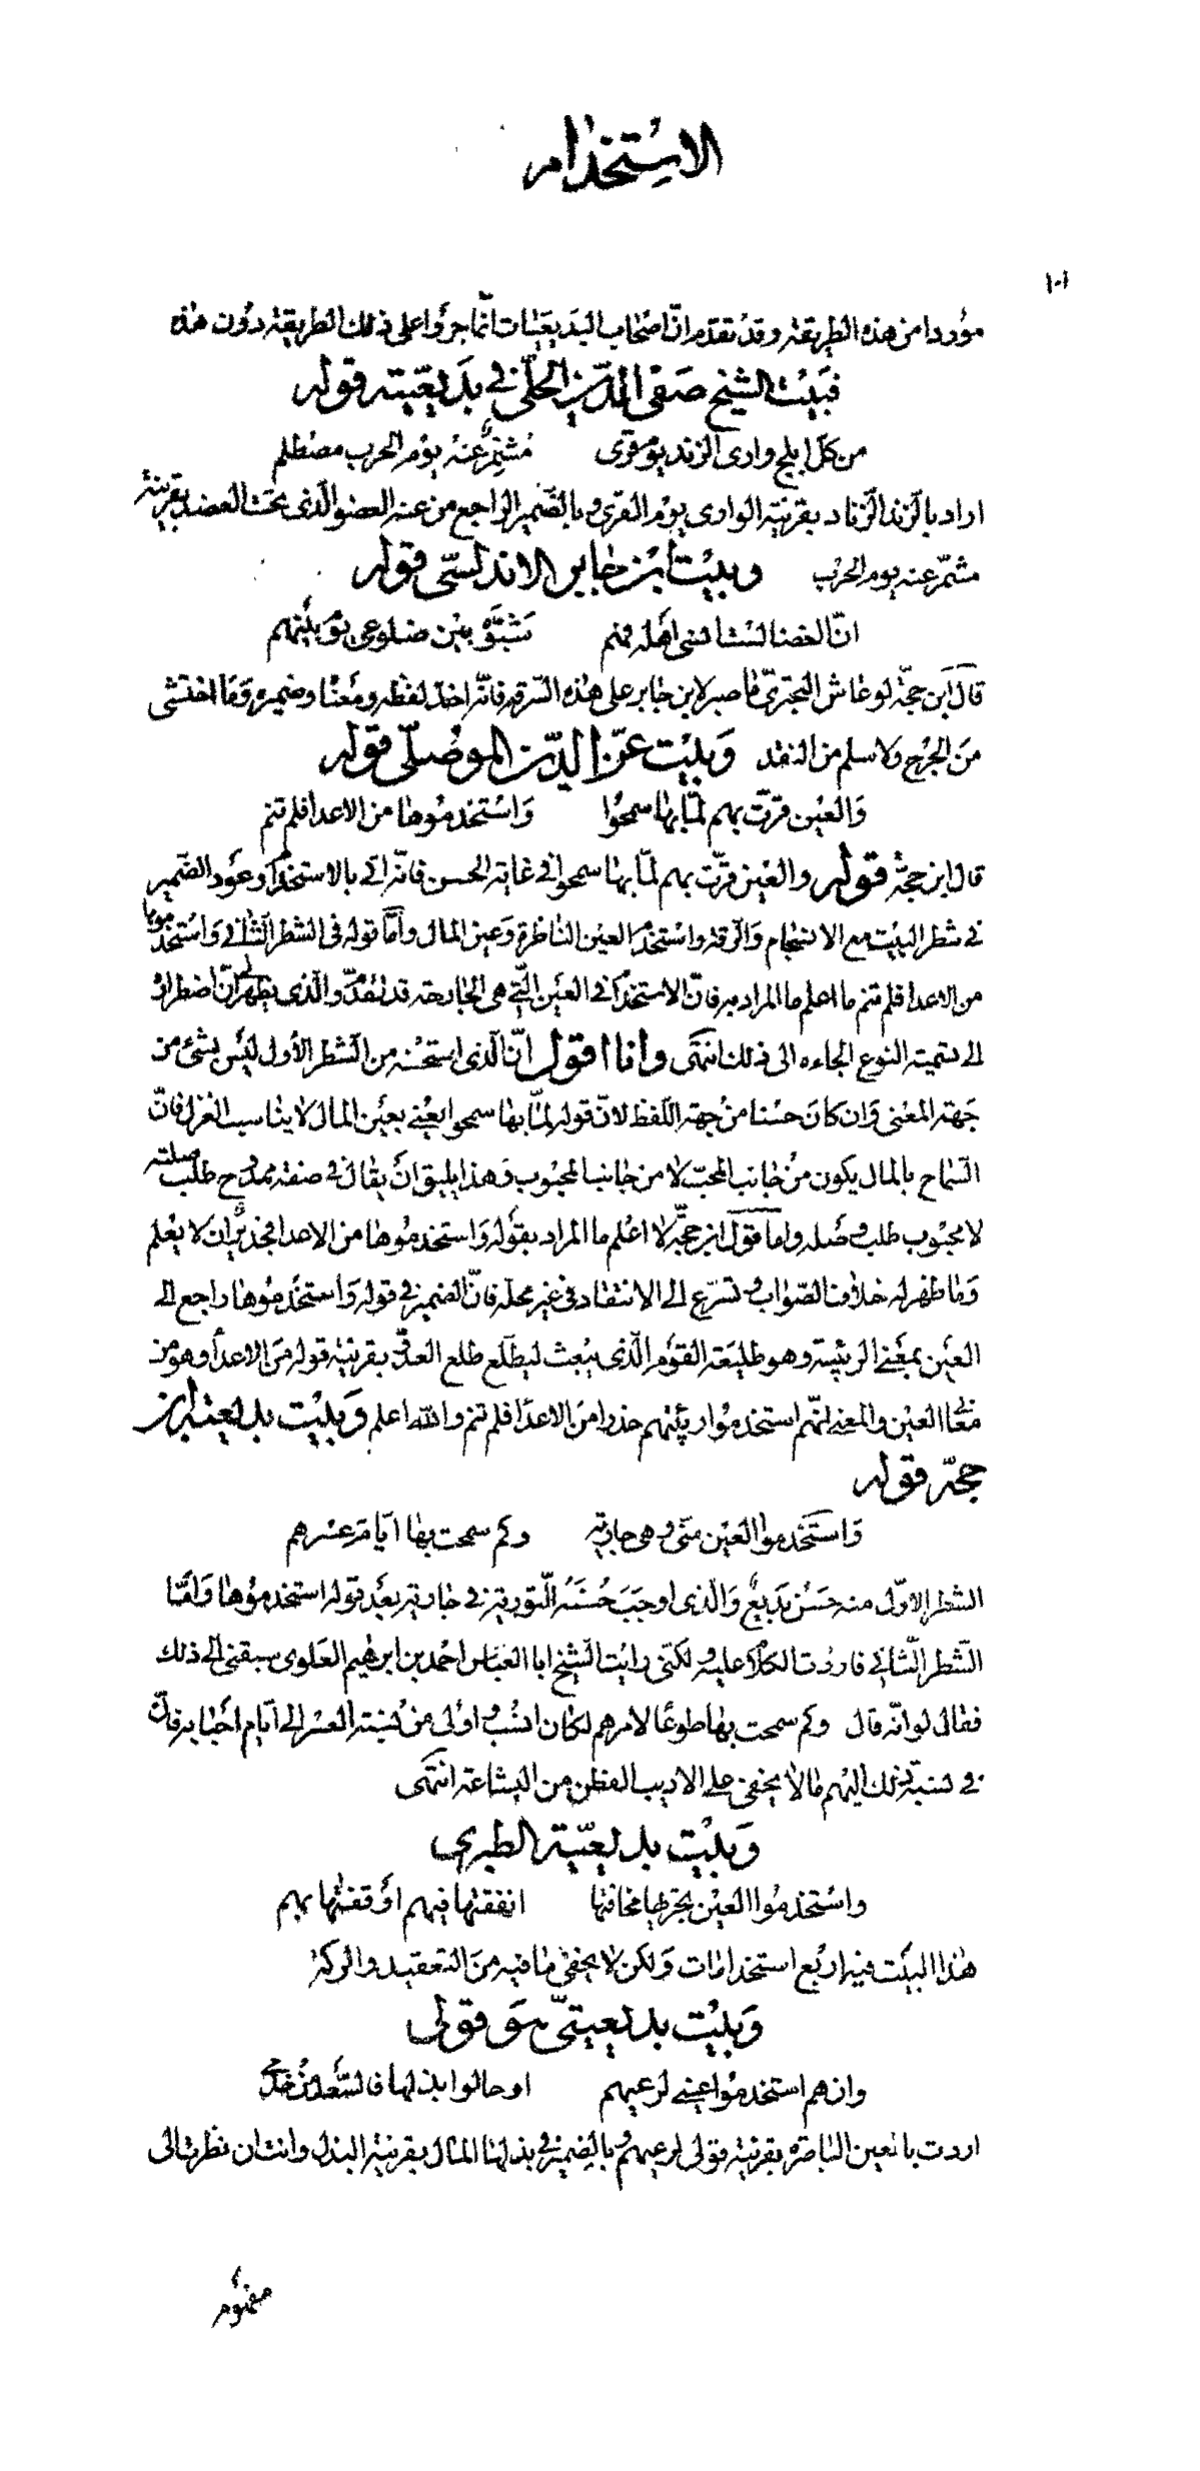 الاستخدام
١٠١
موردا من هذه الطريقة وقد تقدم انّ اصحاب البديعيات انّما جروا على ذلك الطريقة دون هذه
فبيت الشيخ صفى الدين الحلّى في بديعيته قوله
من كل ابلج وارى الزند يوم قرى مشمر عنه يوم الحرب مصطلم
اراد بالزند الزناد بقرينة الوارى يوم القرى وبالضمير الراجع من عنه العضو الذى تحت العضد بقرينة
مشمر عنه يوم الحرب وبيت ابن جابر الاندلسى قوله
انّ الغضا لست انسى اهله فهم شبّوه بين ضلوعى يوم بينهم
قال ابن حجّة لو عاش البحترىّ ما صبر لابن جابر على هذه السرقة فانّه اخذ لفظه ومعناه وضميره وما اختشى
من الجرح ولا سلم من النقد وبيت عزّ الدين الموصلّى قوله
والعين قرّت بهم لمّا بها سمحوا واستخدموها من الاعدا فلم تنم
قال ابن حجّة قوله والعين قرّت بهم لمّا بها سمحوا في غاية الحسن فانّه اتى بالاستخدام وعود الضمير
في شطر البيت مع الانسجام والرقة واستخدم العين الناظرة وعين المال وأمّا قوله في الشطر الثاني واستخدموها
من الاعدا فلم تنم ما اعلم ما المراد به فانّ الاستخدام في العين التي هي الجارحة قد تقدّم والّذى يظهر لى انّ اضطراره
الى تسمية النوع الجاءه الى ذلك انتهى وانا اقول انّ الّذى استحسنه من الشطر الأول ليس بشئ من
جهة المعنى وان كان حسنا من جهة اللّفظ لانّ قوله لمّا بها سمحوا يعني بعين المال لا يناسب الغزل فانّ
السّماح بالمال يكون من جانب المحبّ لا من جانب المحبوب وهذا يليق ان يقال في صفة ممدوح طلب صلته
لا محبوب طلب وصله واما قول ابن حجّة لا اعلم ما المراد بقوله واستخدموها من الاعدا فجدير ان لا يعلم
وما ظهر له خلاف الصواب وتسرّع الى الانتقاد في غير محله فانّ الضمير في قوله واستخدموها راجع الى
العين بمعنى الربيئة وهو طليعة القوم الّذى يبعث ليطّلع طلع العدوّ بقرينة قوله من الاعدا وهو من
معانى العين والمعنى انّهم استخدموا ربيئتهم حذرا من الاعدا فلم تنم والله اعلم وبيت بديعية ابن
حجّة قوله
واستخدموا العين منّى وهى جارية وكم سمحت بها ايّام عسرهم
الشطر الاوّل منه حسن بديع والّذى اوجب حسنه التورية في جارية بعد قوله استخدموها وأمّا
الشطر الثاني فاردت الكلام عليه لكنّى رايت الشيخ ابا العباس احمد بن ابرهيم العلوى سبقنى الى ذلك
فقال لو انّه قال وكم سمحت بها طوعًا لامرهم لكان انسب واولى من نسبة العسر الى ايّام احبابه فانّ
في نسبة ذلك اليهم ما لا يخفى على الاديب الفطن من البشاعة انتهى
وبيت بديعيّة الطبرى
واستخدموا العين بجزيها انفقتها فيهم او قفتها بهم
هذا البيت فيه اربع استخدامات ولكن لا يخفى ما فيه من التعقيد والركة
وبيت بديعيتى هو قولى
وان هم استخدموا عينى لرعيهم او حاولوا بذلها فالسّعد من خدمى
اردت بالعين الباصرة بقرينة قولى لرعيهم وبالضمير في بذلها المال بقرينة البذل وانت ان نظرت الى
مفهوم